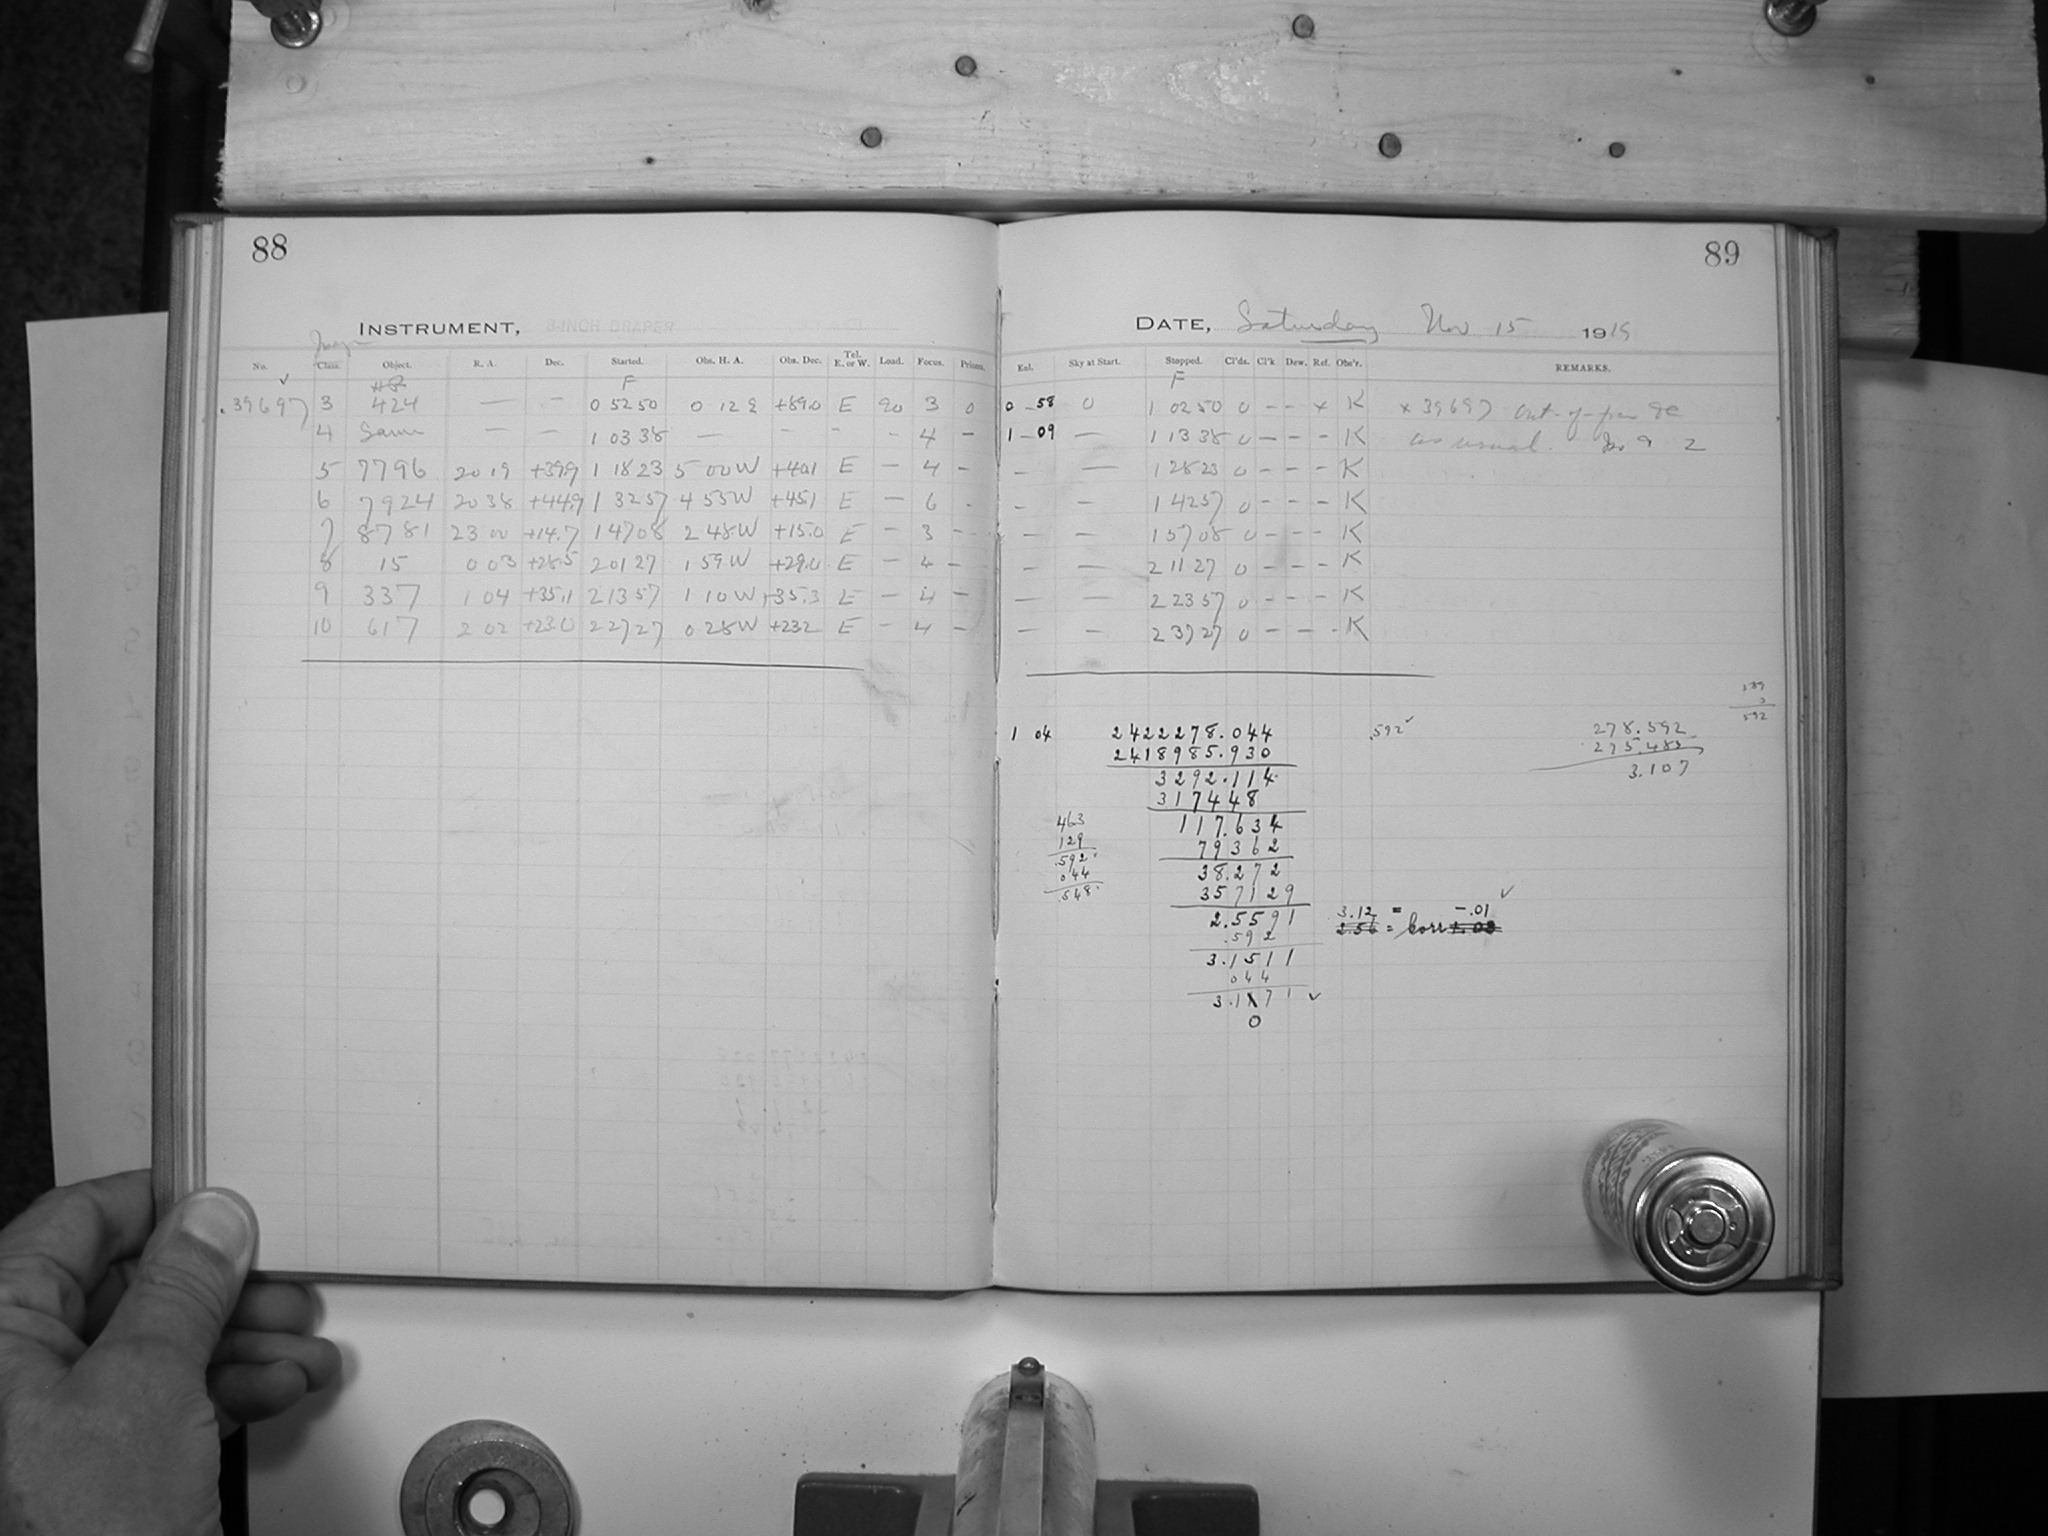 88
INSTRUMENT, 8-INCH DRAPER
No. Class. Object. R. A. Dec. Started. Obs. H. A. Obs. Dec. Tel. E. or W. Load. Focus. Prisms.
F
39697 3 424 — — 0 52 50 0 12 E +89.0 E 90 3 0
4 Same — — 1 03 38 — - - - 4 -
5 7796 20 19 +39.9 1 18 23 5 00 W +40.1 E — 4 -
6 7924 20 38 +44.9 1 32 57 4 55 W +45.1 E — 6 -
7 8781 23 00 +14.7 1 47 08 2 48 W +15.0 E — 3 -
8 15 0 03 +28.5 2 01 27 1 59 W +29.0 E — 4 -
9 337 1 04 +35.1 2 13 57 1 10 W +35.3 E — 4 -
10 617 2 02 +23.0 2 27 27 0 28 W +23.2 E - 4 -
89
DATE, Saturday Nov 15 1919
Exl. Sky at Start. Stopped. Cl'ds. Cl'k Dew. Ref. Obs'r. REMARKS.
F
0 58 0 1 02 50 0 - - x K x 39697 Out-of-
1 09 — 1 13 38 0 - - - K as usual.
- — 1 28 23 0 - - - K
- - 1 42 57 0 - - - K
- - 1 57 08 0 - - - K
- — 2 11 27 0 - - - K
— — 2 23 57 0 - - - K
— — 2 37 27 0 - - - K
1 04 2422278.044 .592
2418985.930
3292.114
317448
117.634
79362
38.272
357129
2.5591
.592
3.1511
044
3.1X71
0
463
129
.592
044
.548
3.12 = -.01
2.56 = corr +.02
3
592
278.592
275.485
3.107